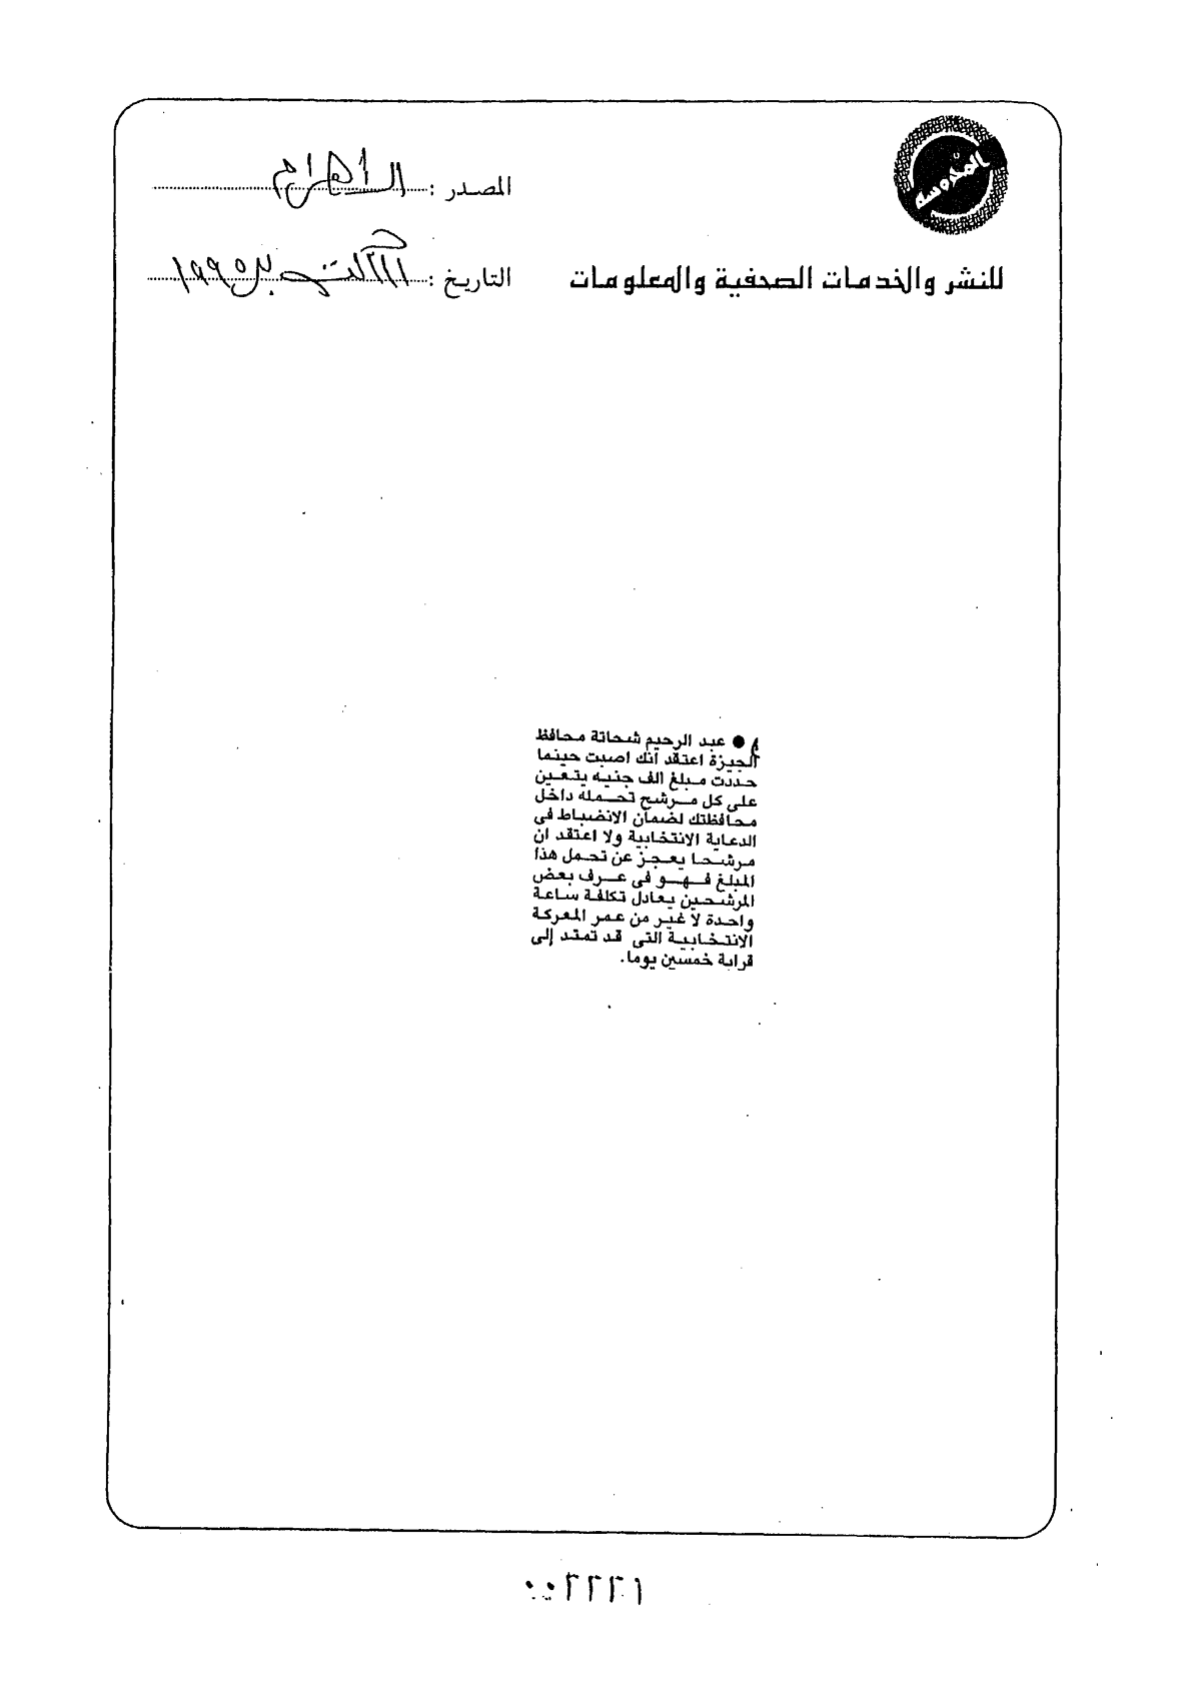 المصدر : الأهرام
للنشر والخدمات الصحفية والمعلومات
التاريخ : أكتوبر ١٩٩٥
● عبد الرحيم شحاتة محافظ
الجيزة اعتقد أنك اصبت حينما
حددت مبلغ الف جنيه يتعين
على كل مرشح تحمله داخل
محافظتك لضمان الانضباط فى
الدعاية الانتخابية ولا اعتقد ان
مرشحا يعجز عن تحمل هذا
المبلغ فهو فى عرف بعض
المرشحين يعادل تكلفة ساعة
واحدة لا غير من عمر المعركة
الانتخابية التى قد تمتد إلى
قرابة خمسين يوما.